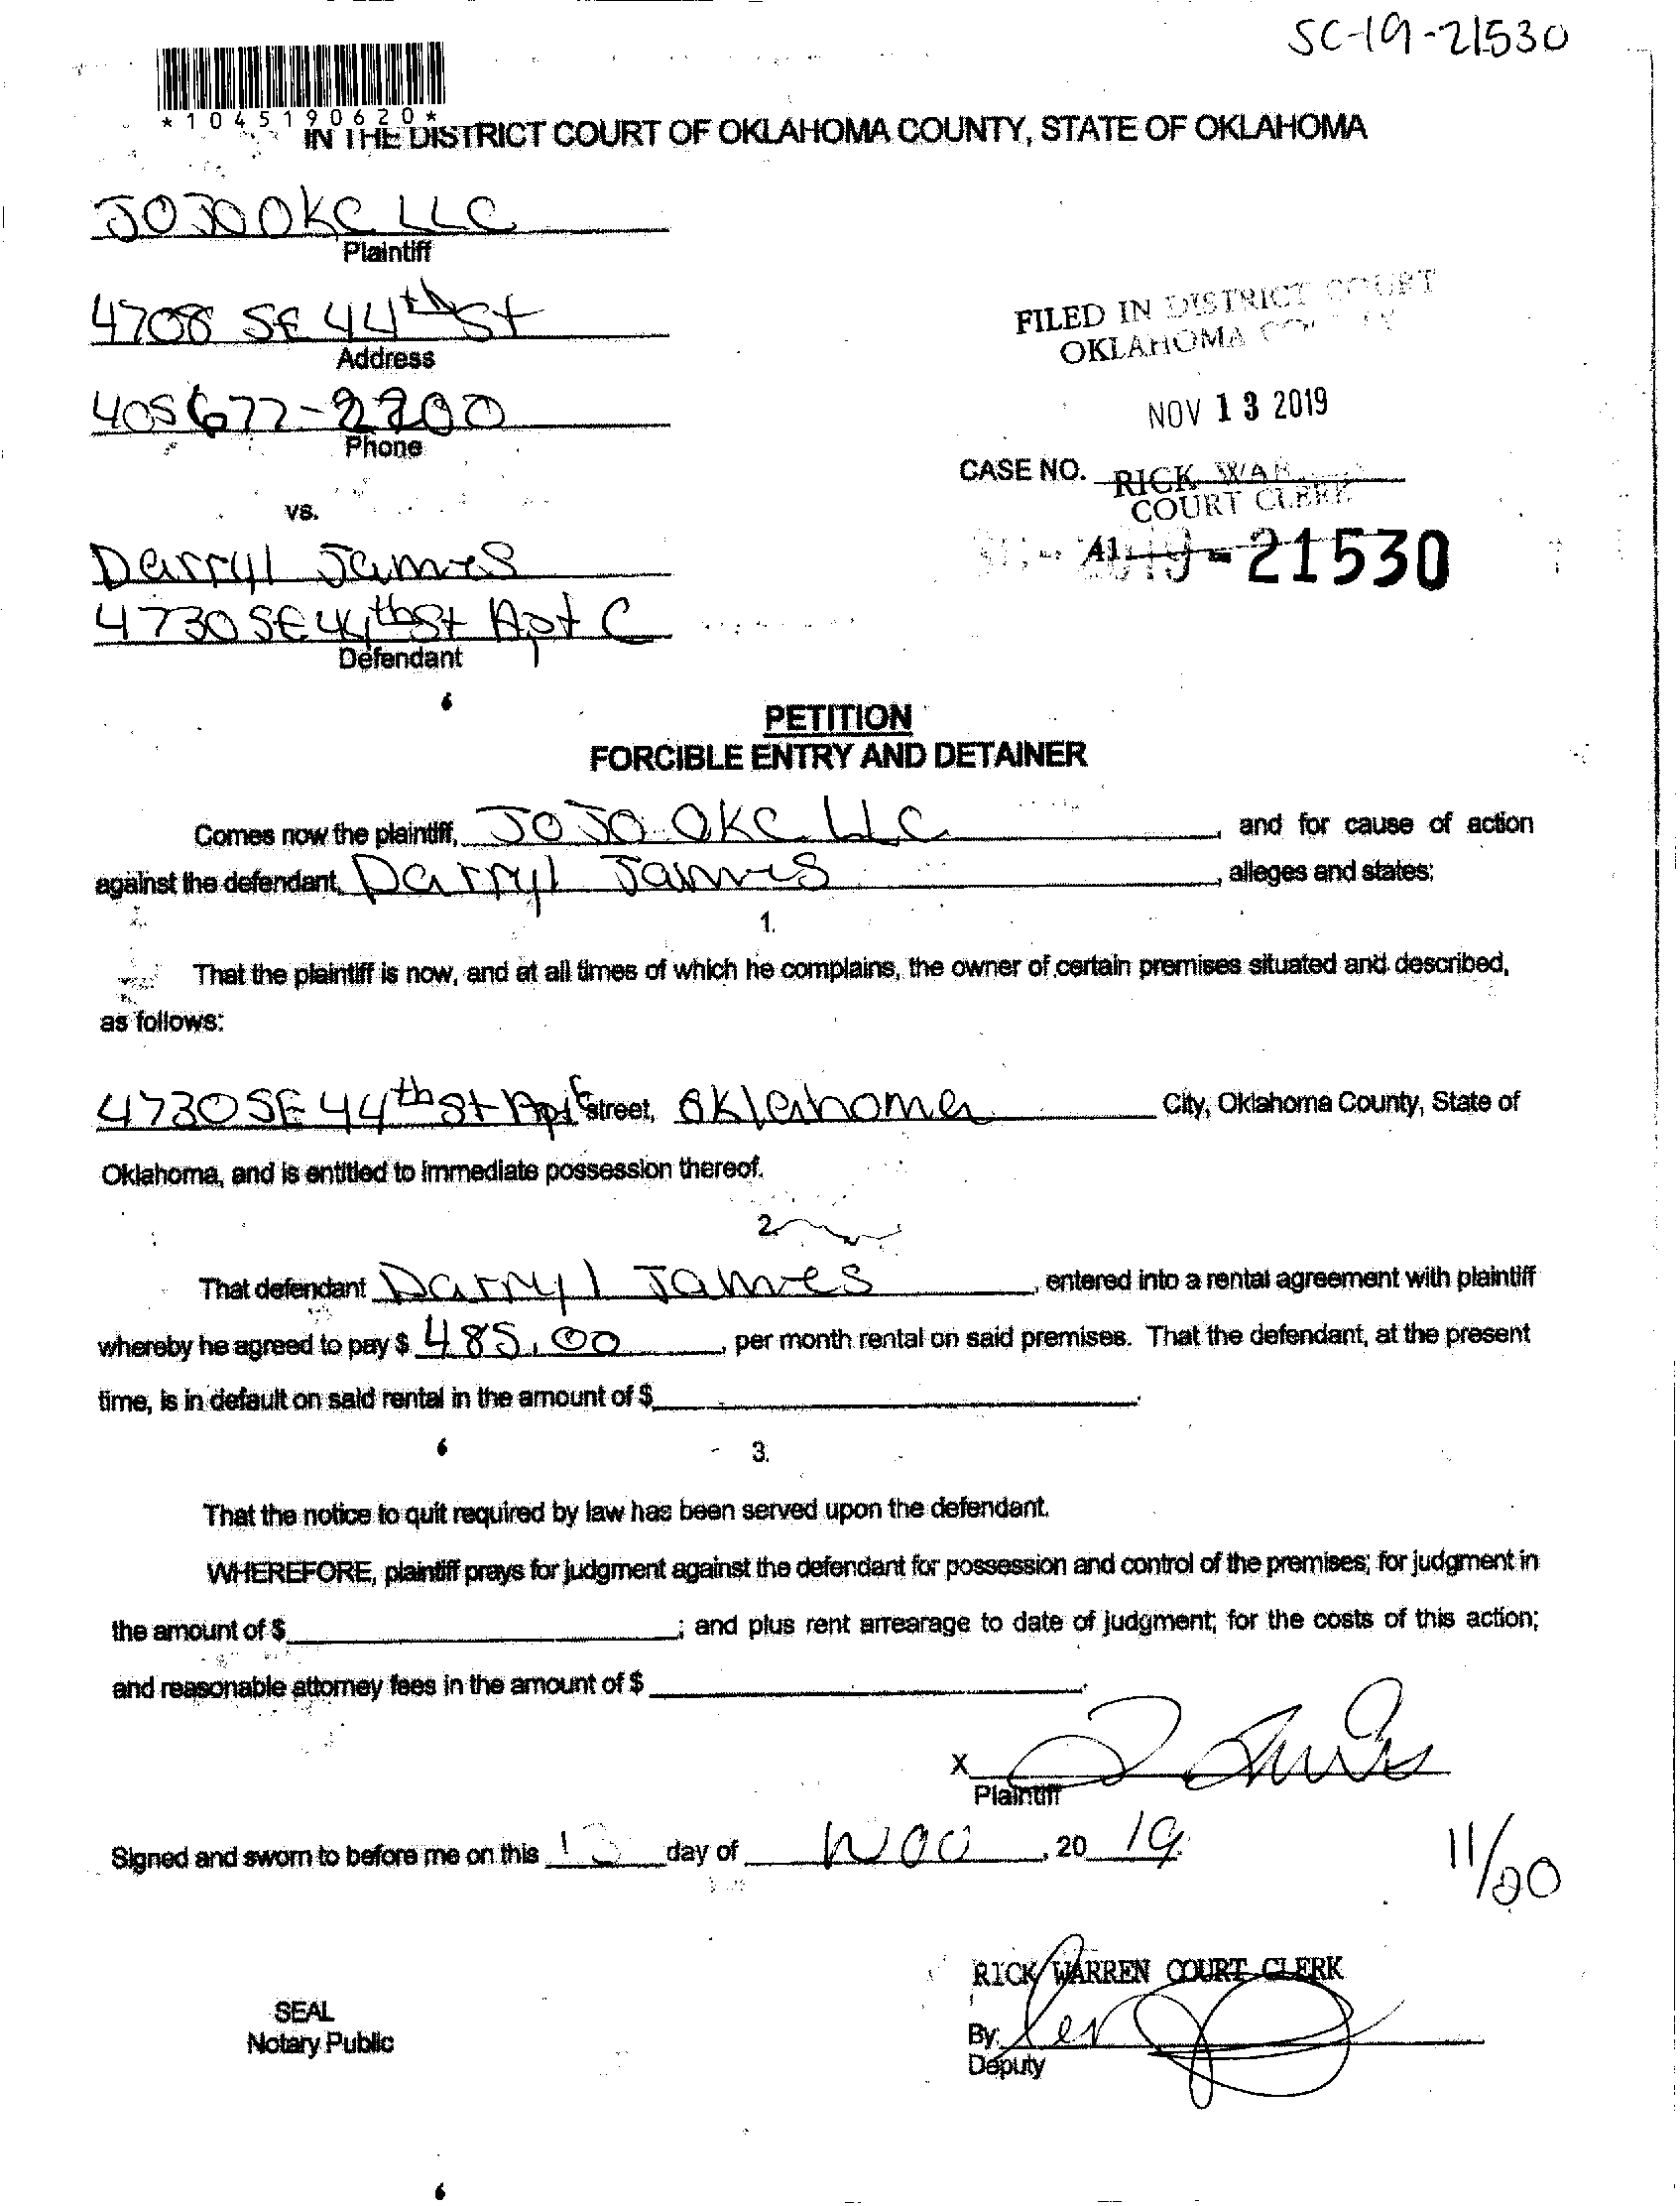 SC-19-21530
*1045190620*
IN THE DISTRICT COURT OF OKLAHOMA COUNTY, STATE OF OKLAHOMA
JOJO OKC LLC
Plaintiff
4708 SE 44th St
Address
FILED IN DISTRICT COURT
OKLAHOMA
405 677-2200
Phone
NOV 13 2019
CASE NO.
RICK
COURT CLERK
vs.
21530
Darryl James
4730 SE 44th St Apt C
Defendant
PETITION
FORCIBLE ENTRY AND DETAINER
Comes now the plaintiff, JOJO OKC LLC and for cause of action
against the defendant, Darryl James, alleges and states:
1.
That the plaintiff is now, and at all times of which he complains, the owner of certain premises situated and described,
as follows:
4730 SE 44th St Apt C street, Oklahoma City, Oklahoma County, State of
Oklahoma, and is entitled to immediate possession thereof.
2.
That defendant Darryl James, entered into a rental agreement with plaintiff
whereby he agreed to pay $ 485.00, per month rental on said premises. That the defendant, at the present
time, is in default on said rental in the amount of $
3.
That the notice to quit required by law has been served upon the defendant.
WHEREFORE, plaintiff prays for judgment against the defendant for possession and control of the premises; for judgment in
the amount of $ ; and plus rent arrearage to date of judgment; for the costs of this action;
and reasonable attorney fees in the amount of $
X
Plaintiff
Signed and sworn to before me on this 13 day of Nov, 20 19
11/20
RICK WARREN COURT CLERK
SEAL
Notary Public
By:
Deputy